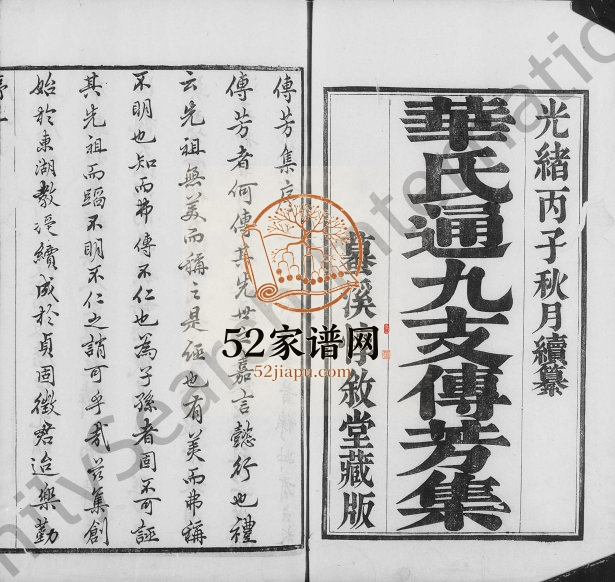 光緒丙子秋月續纂
華氏通九支傳芳集
溪敘堂藏版
傳芳集序
傳芳者何傳其先世嘉言懿行也禮
云先祖無美而稱之是誣也有美而弗稱
不明也知而弗傳不仁也為子孫者固不可誣
其先祖而蹈不明不仁之誚可乎哉茲集創
始於東湖教授續成於貞固徵君迨樂勤
序一
52家谱网
52jiapu.com